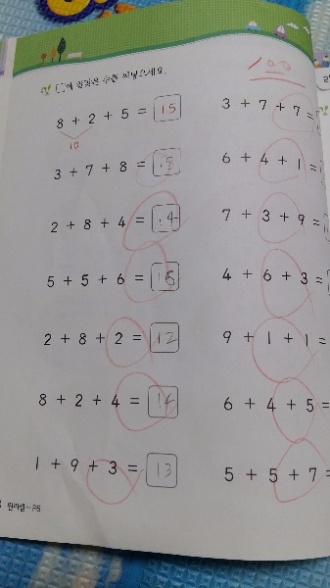 □에 알맞은 수를 써넣으세요.
100
8 + 2 + 5 = 15
10
3 + 7 + 8 = 18
2 + 8 + 4 = 14
5 + 5 + 6 = 16
2 + 8 + 2 = 12
8 + 2 + 4 = 14
1 + 9 + 3 = 13
3 + 7 + 7 =
6 + 4 + 1 =
7 + 3 + 9 =
4 + 6 + 3 =
9 + 1 + 1 =
6 + 4 + 5 =
5 + 5 + 7 =